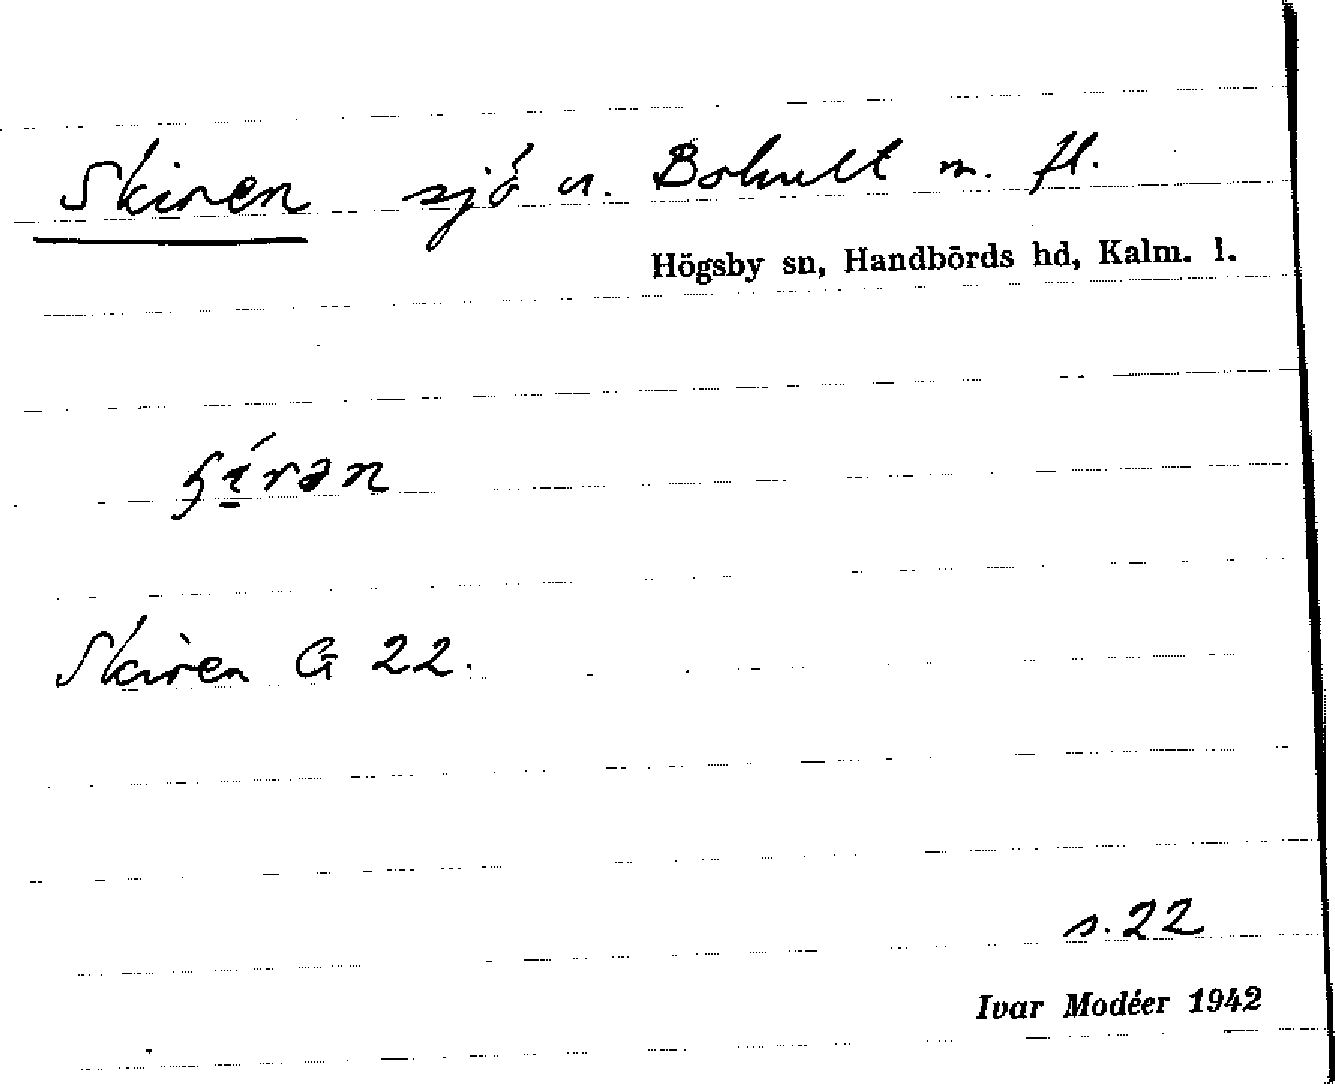 Skiren sjö u. Bohult m. fl.
Högsby sn, Handbörds hd, Kalm. l.
Skiren G 22.
s. 22
Ivar Modéer 1942